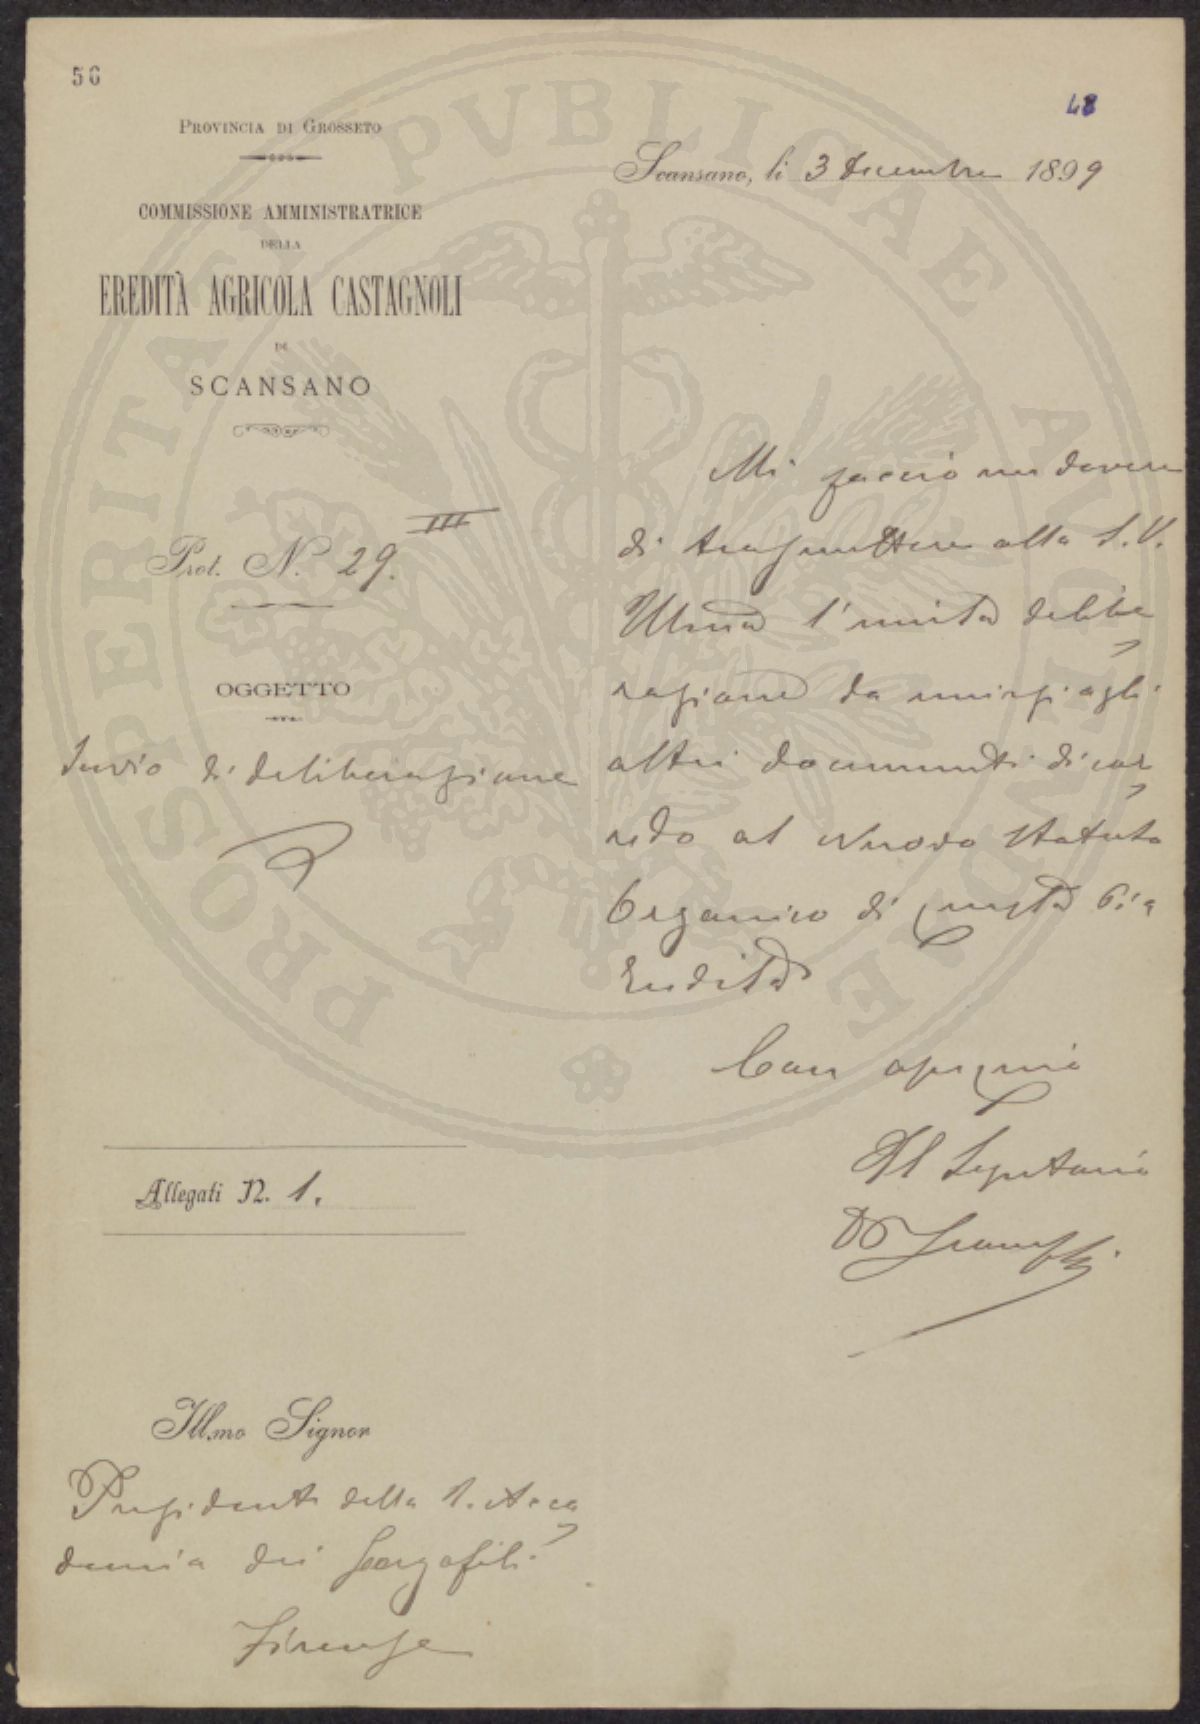 56
48
PROVINCIA DI GROSSETO
COMMISSIONE AMMINISTRATRICE
DELLA
EREDITÀ AGRICOLA CASTAGNOLI
DI
SCANSANO
Scansano, li 3 Decembre 1899
Prot. N. 29. III
OGGETTO
Invio di deliberazione
Mi faccio un dovere
di trasmettere alla S.V.
Illma l'unita delibe
razione da unirsi agli
altri documenti di cor
redo al Nuovo Statuto
Organico di questa Pia
Eredità
Con ossequio
Il Segretario
Allegati N. 1.
Illmo Signor
Presidente della R. Acca
demia dei Georgofili
Firenze
PROSPERITATI PVBLICAE AVGENDAE